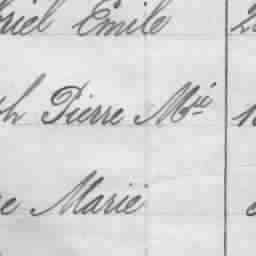 riel Émile
h Pierre Mie
e Marie